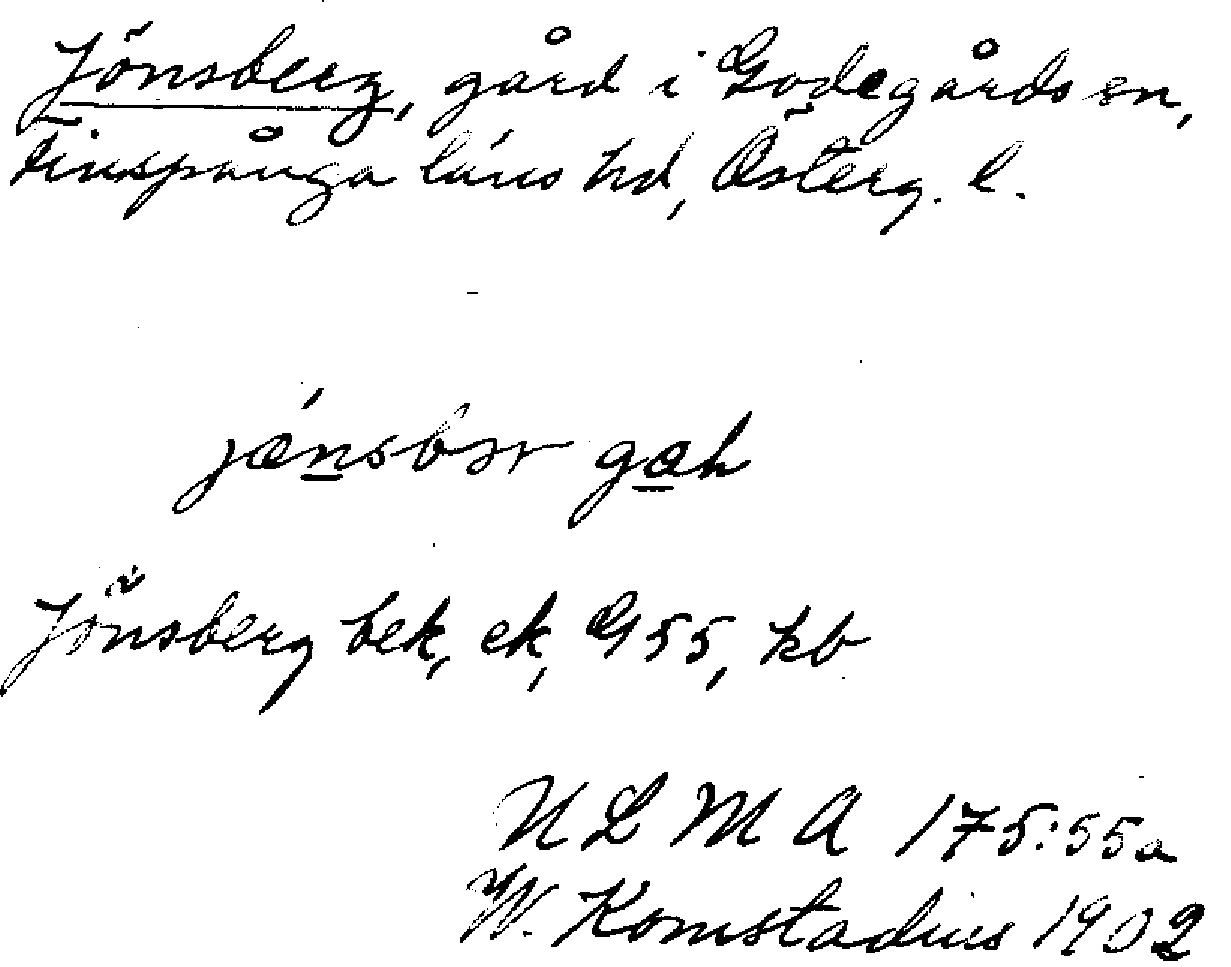 Jönsberg, gård i Godegårds sn,
Finspånga läns hd, Österg. l.
Jönsberg bek, ek, G 55, kb
ULMA 175:55a
W. Komstadius 1902